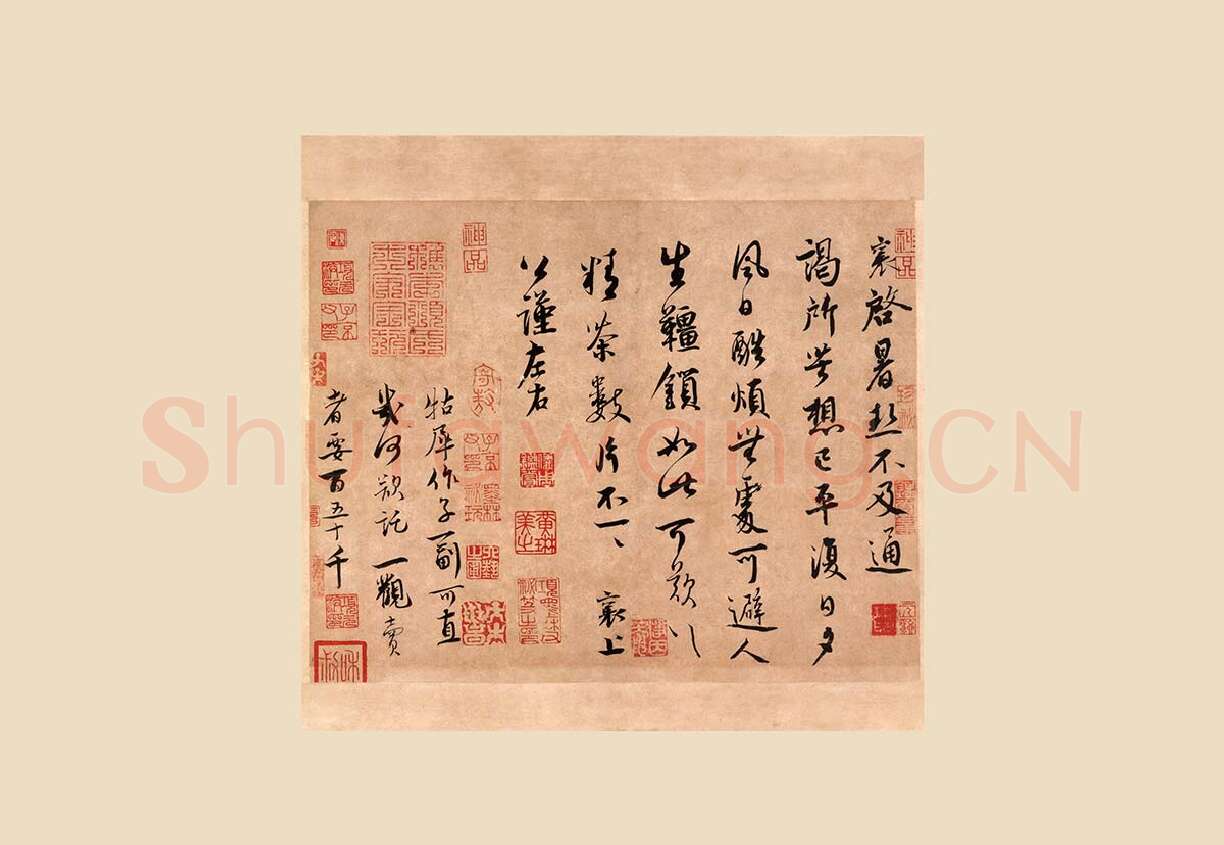 襄啓暑熱不及通
謁所苦想已平復日夕
風日酷煩無處可避人
生韁鎖如此可歎〻
精茶數片不一〻 襄上
公謹左右
牯犀作子一副可直
幾何欲託一觀賣
者要百五十千
神品
神品
子京
Shufawang.CN